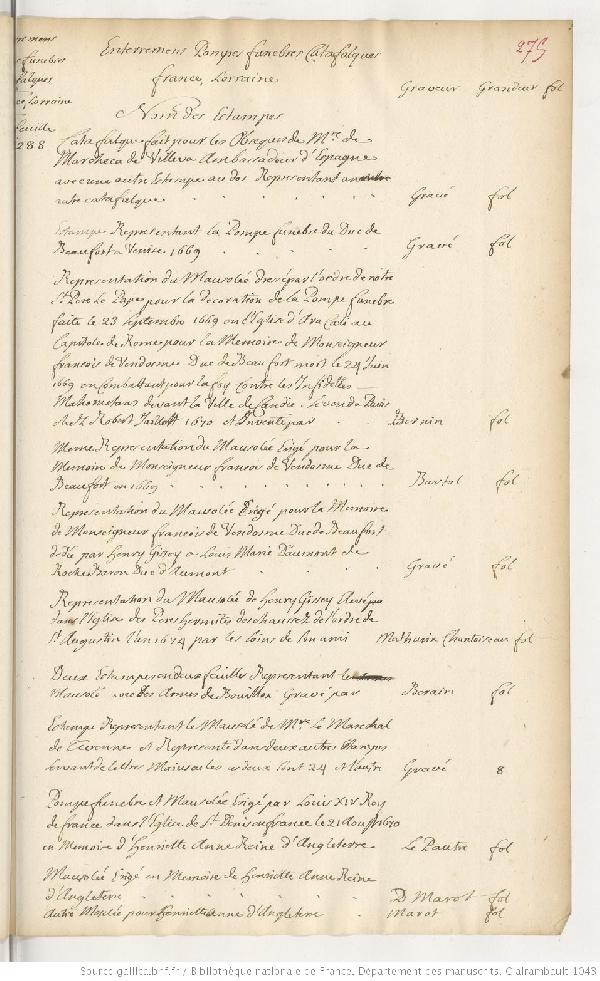 Enterremens Pompes funebres Catafalques
275
france, Lorraine
Graveur Grandeur fol
Nom des Estampes
288
Catafalque fait pour les Obseques de Mre. de
Marcheca de Villeva Ambassadeur d'Espagne
avec une autre Estampe au dos Representant un
autre catafalque Gravé fol
Estampe Representant la Pompe funebre du Duc de
Beaufort a Venise 1669 Gravé fol
Representation du Mausolé dressé par l'ordre de notre
St. Pere Le Pape pour la decoration de la Pompe funebre
faite le 23 Septembre 1669 en l'Eglise d'Ara Cæli au
Capitole de Rome pour la Memoire de Monseigneur
francois de Vendosme Duc de Beaufort mort le 24 Juin
1669 en Combattant pour la foy contre les Infideles
Mahometans devant la Ville de Candie
chez Robert Jaillott 1670 et Inventé par Bernin fol
Meme Representation du Mausolée Erigé pour la
Memoire de Monseigneur francois de Vendosme Duc de
Beaufort en 1669 fol
Representation du Mausolée Erigé pour la Memoire
de Monseigneur francois de Vendosme Duc de Beaufort
dedié par Henry Gissey a Louis Marie Daumont de
Rochebaron Duc d'Aumont Gravé fol
Representation du Mausolée de Henry Gissey
dans l'Eglise des Peres hermites dechaussez de l'ordre de
St. Augustin l'an 1674 par les soins de son ami Mathurin Chantoiseau fol
Deux Estampes en deux feuilles Representant le
Mausolé avec des Armes de Bouillon Gravé par Berain fol
Estampe Representant le Mausolé de Mre. Le Marechal
de Turenne et Representé dans deux autres Estampes
servant de lettres Maiuscules Gravé 8
Pompe funebre et Mausolée Erigé par Louis XIV Roy
de france dans l'Eglise de St. Denis en france le 21 Aoust 1670
en Memoire d'Henriette Anne Reine d'Angleterre Le Pautre fol
Mausolée Erigé en Memoire de Henriette Anne Reine
d'Angleterre D Marot fol
Autre Mosolé pour Henriette Anne d'Angleterre Marot fol
Source gallica.bnf.fr / Bibliothèque nationale de France. Département des manuscrits. Clairambault 1043